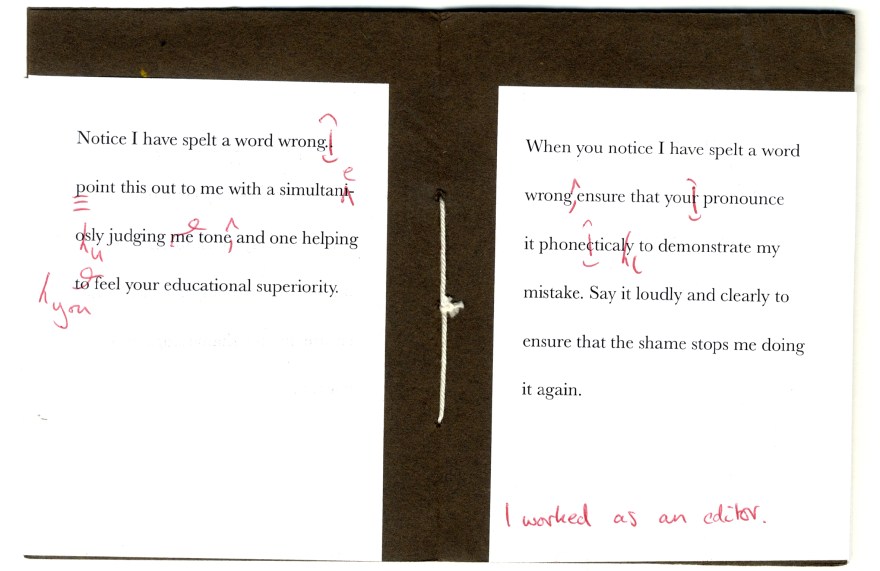 Notice I have spelt a word wrong..
e
point this out to me with a simultani-
osly judging me tone, and one helping
u
to feel your educational superiority.
you
When you notice I have spelt a word
wrong, ensure that your pronounce
it phonecticaly to demonstrate my
l
mistake. Say it loudly and clearly to
ensure that the shame stops me doing
it again.
I worked as an editor.